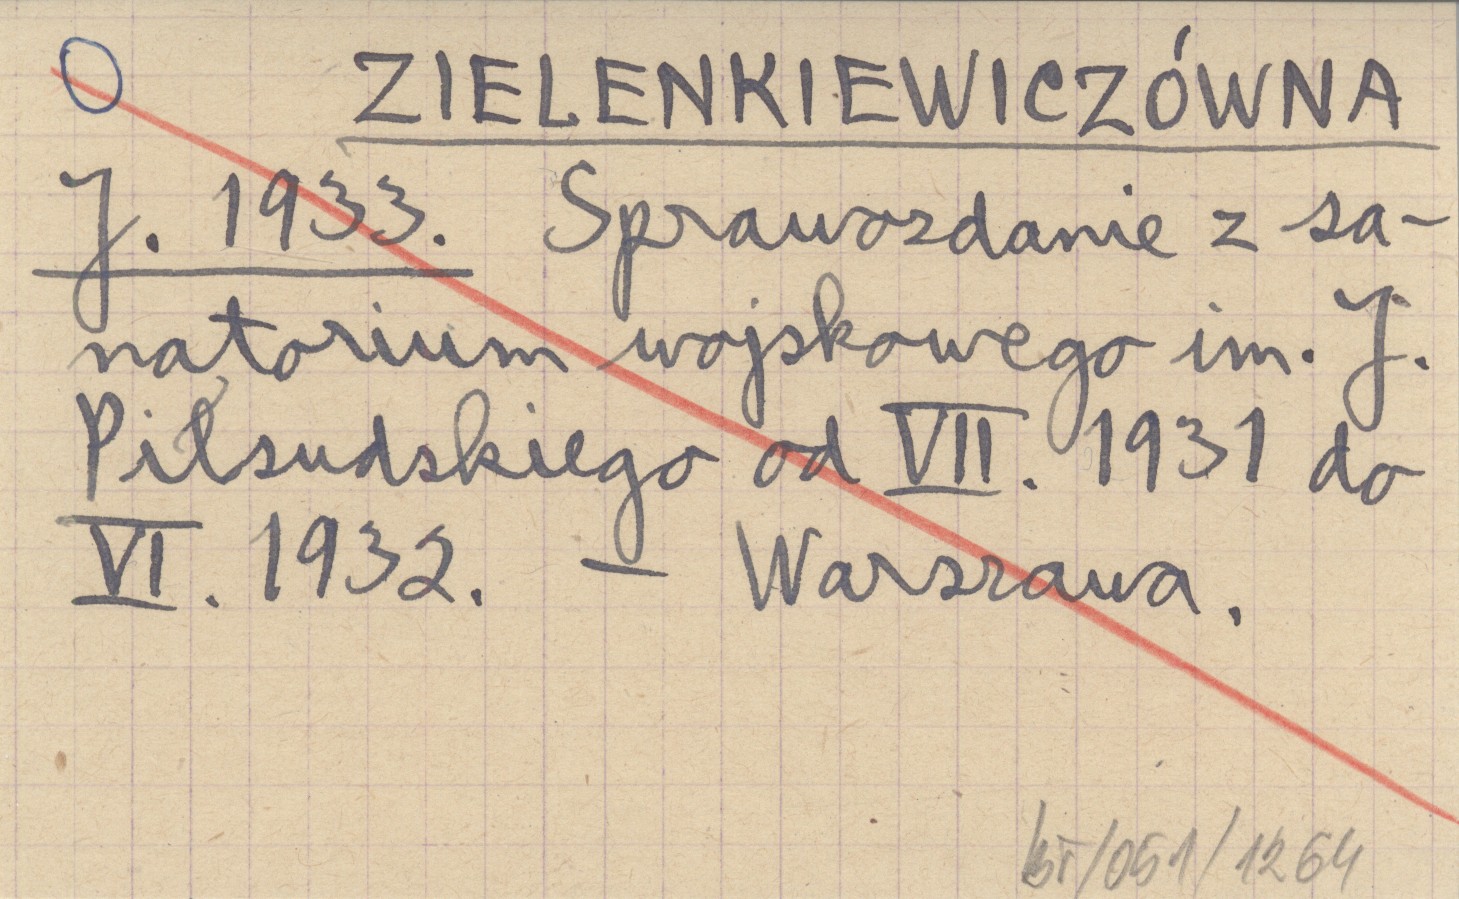 ZIELENKIEWICZÓWNA
J. 1933. Sprawozdanie z sa-
natorium wojskowego im. J.
Piłsudskiego od VII. 1931 do
VI. 1932. — Warszawa.
/051/1264